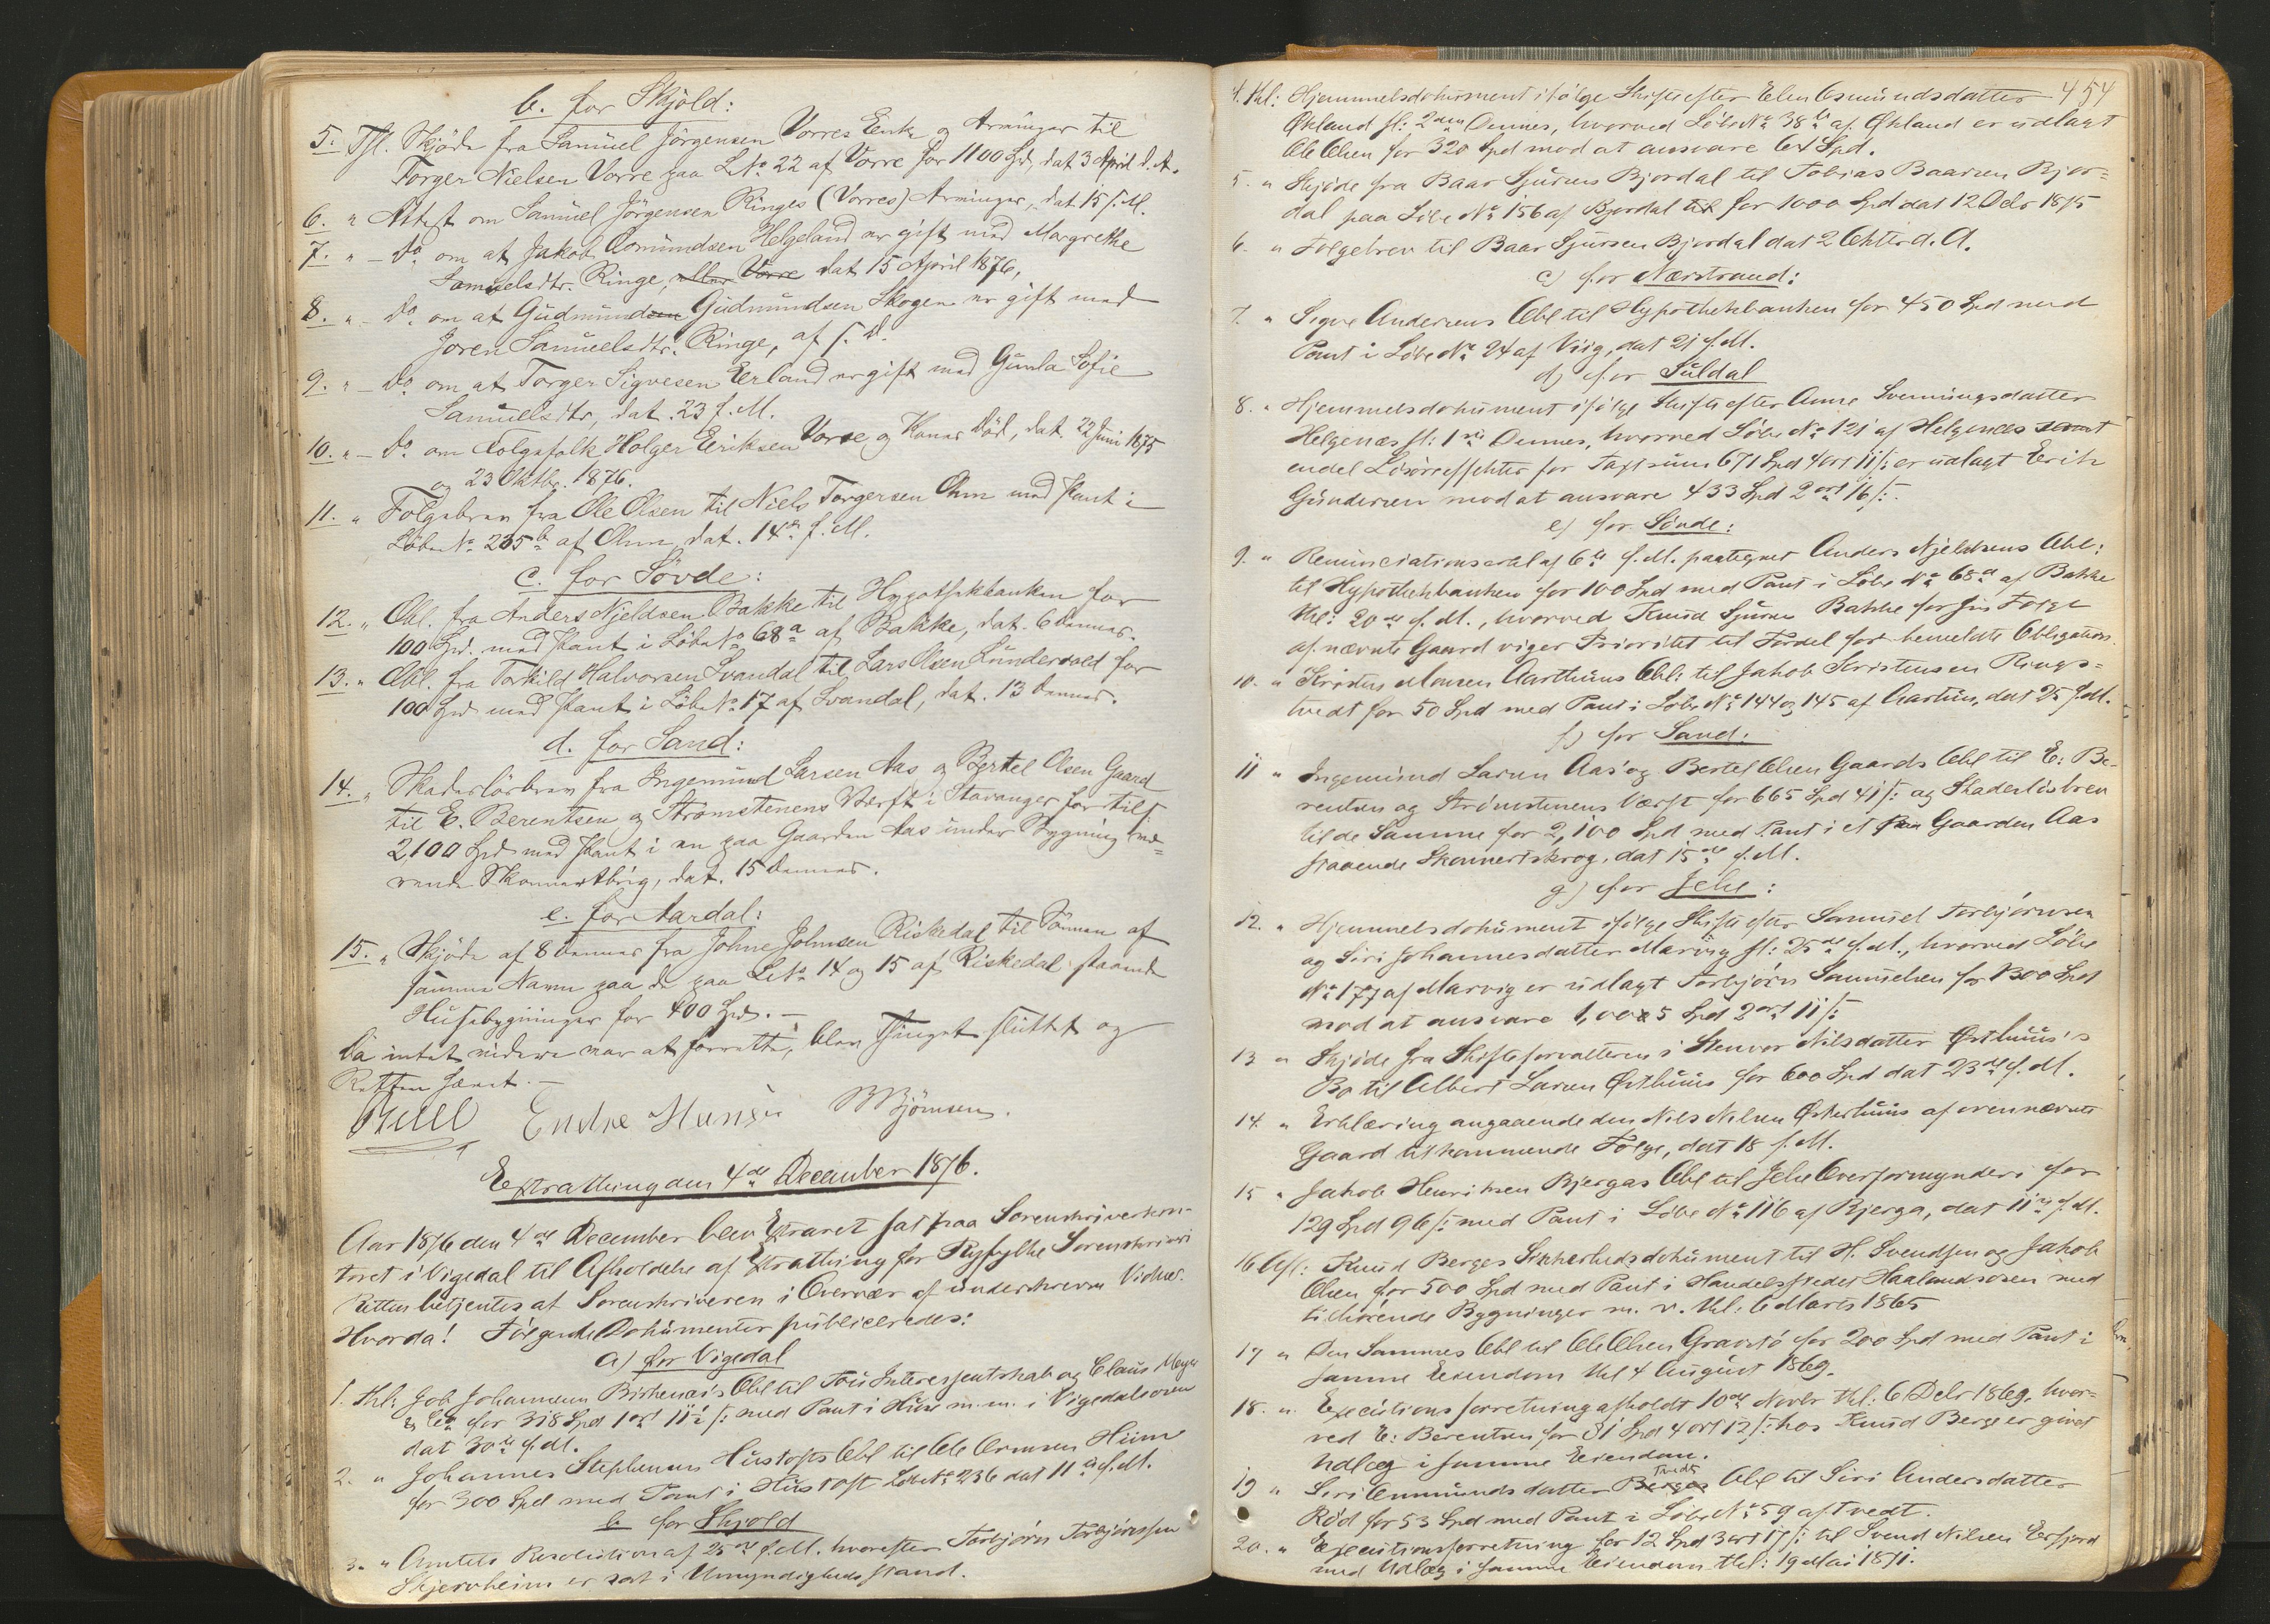 b. for Skjold:
5. Thl. Skjöde fra Samuel Jörgensen Vorres Enke og Arvinger til
Torger Nielsen Vorre paa L.No 22 af Vorre for 1100 Spd, dat 3 April d. A.
6. " Attest om Samuel Jörgensen Ringes (Vorres) Arvinger, dat. 15 f. M.
7. " - Do om at Jakob Osmundsen Helgeland er gift med Margrethe
Samuelsdtr. Ringe, eller Vorre dat 15 April 1876,
8. " - Do om at Gudmundsen Gudmundsen Skogen er gift med
Joren Samuelsdtr. Ringe, af s. D.
9. " - Do om at Torger Sigvesen Erland er gift med Gunla Sofie
Samuelsdtr, dat. 23 f. M.
10. " - Do om Folgefolk Holger Eriksen Vorre og Kones Död, dat. 22 Juni 1875
og 23 Oktbr. 1876.
11. " Folgebrev fra Ole Olsen til Niels Torgersen Ohm med Pant i
Löbe No 205 b af Ohm, dat. 14de f. M.
c. for Sövde:
12. " Obl. fra Anders Njeldsen Bakke til Hypothekbanken for
100 Spd. med Pant i Löbe No 68 a af Bakke, dat. 6 dennes.
13. " Obl. fra Torkild Halvorsen Svandal til Lars Olsen Lundervold for
100 Spd med Pant i Löbe No 17 af Svandal, dat. 13 dennes.
d. for Sand:
14. " Skadeslösbrev fra Ingemund Larsen Aas og Bertel Olsen Gaard
til E. Berentsen og Strömstenens Værft i Stavanger for tils.
2,100 Spd med Pant i en paa Gaarden Aas under Bygning væ=
rende Skonnertbrig, dat. 15 dennes.
e. for Aardal:
15. " Skjöde af 8 dennes fra Johne Johnsen Riskedal til Sönnen af
samme Navn paa de paa L.No 14 og 15 af Riskedal staaende
Husebygninger for 400 Spd. -
Da intet videre var at forrette, blev Thinget sluttet og
Retten hævet. -
Endre Hansen BBjörnsen.
Extrathing den 4de December 1876.
Aar 1876 den 4de December blev Extraret sat paa Sorenskriverkon-
toret i Vigedal til Afholdelse af Extrathing for Ryfylke Sorenskriveri
Retten betjentes af Sorenskriveren i Overvær af underskrevne Vidner.
Hvorda! Følgende Dokumenter publiceredes:
a) for Vigedal
1. Thl: Job Johannesen Birkenæs's Obl til Tou Interessentskab og Claus Meyer
& Co for 318 Spd 1 ort 11½ s: med Pant i Huse m. m. i Vigedalsosen
dat 30te f. M.
2. " Johannes Stephensens Hustofts Obl til Ole Ormsen Hiim
for 300 Spd med Pant i Hustoft Løbe No 236 dat 11te f. M.
b for Skjold
3. " Amtets Resolution af 25de f. M. hvorefter Torbjörn Torbjörnsen
Skjerveheim er sat i Umyndigheds stand.
454
4. Thl: Hjemmelsdokument ifölge Skifte efter Elen Osmundsdatter
Økland sl: 2den Dennes, hvorved Löbe No 38 b af Økland er udlagt
Ole Olsen for 320 Spd mod at ansvare 64 Spd.
5. " Skjöde fra Baar Sjursen Bjordal til Tobias Baarsen Bjor=
dal paa Löbe No 156 af Bjordal til for 1000 Spd dat 12 Octr 1875
6. " Folgebrev til Baar Sjursen Bjordal dat 2 Octbr d. A.
c) for Nærstrand:
7. " Sigve Andersens Obl til Hypothekbanken for 450 Spd med
Pant i Löbe No 24 af Viig, dat 21 f. M.
d) for Suldal
8. " Hjemmelsdokument ifölge Skifte efter Anne Svenningsdatter
Helgenæs sl: 1ste Dennes, hvorved Löbe No 121 af Helgenæs samt
endel Lösöreeffekter for Taxtsum 671 Spd 4 ort 11 s: er udlagt Erik
Gundersen mod at ansvare 433 Spd 2 ort 16 s:.
e) for Sövde:
9. " Renunciationsertel af 6te f. M. paategnet Anders Njeldsens Obl:
til Hypothekbanken for 100 Spd med Pant i Löbe No 68 a af Bakke
thl: 20de f. M., hvorved Knud Sjursen Bakke for sin Folge
af nævnte Gaard viger Prioritet til Fordel for bemeldte Obligation.
10. " Kristen Monsen Aarthuns Obl: til Jakob Kristensen Rings=
tvedt for 50 Spd med Pant i Löbe No 144 og 145 af Aartun, dat 25 f. M.
f) for Sand:
11 " Ingemund Larsen Aas' og Bertel Olsen Gaards Obl til E: Be-
rentsen og Strömstenens Værft for 665 Spd 41 s: og Skadeslösbrev
til de Samme for 2,100 Spd med Pant i et paa Gaarden Aas
staaende Skonnertskrog, dat 15de f. M.
g) for Jelse:
12. " Hjemmelsdokument ifölge Skifte efter Samuel Torbjörnsen
og Siri Johannesdatter Marvig sl: 25de f. M., hvorved Löbe
No 177 af Marvig er udlagt Torbjörn Samuelsen for 1300 Spd
mod at ansvare 1,005 Spd 2 ort 11 s:
13 " Skjöde fra Skifteforvalteren i Stenvor Nilsdatter Østhuus's
Bo til Albert Larsen Østhuus for 600 Spd dat 23de f. M.
14. " Erklæring angaaende den Nils Nilsen Østerhuus af ovennævnte
Gaard tilkommende Folge, dat 18 f. M.
15 " Jakob Henriksen Bjergas Obl til Jelse Overformynderi for
129 Spd 96 s: med Pant i Löbe No 116 af Bjerga, dat 11te f. M.
16 Afl: Knud Berges Sikkerhedsdokument til H. Svendsen og Jakob
Olsen for 500 Spd med Pant i Handelsstedet Haalandsosen med
tilhörende Bygninger m. v. thl: 6 Marts 1865
17 " Den Sammes Obl til Ole Olsen Gravstö for 200 Spd med Pant i
samme Eiendom thl 4 August 1869.
18. " Executionsforretning afholdt 10de Novbr thl: 6 Decbr 1869, hvor=
ved E: Berentsen for 31 Spd 4 ort 12 s: hos Knud Berge er givet
Udlæg i samme Eiendom.
19 " Siri Osmunds datter Berges Tvedts Obl til Siri Andersdatter
Röd for 53 Spd med Pant i Löbe No 59 af Tvedt.
20. " Executionsforretning for 12 Spd 3 ort 17 s: til Svend Nilsen Erfjord
med Udlæg i samme Eiendom thl: 19 Mai 1871.